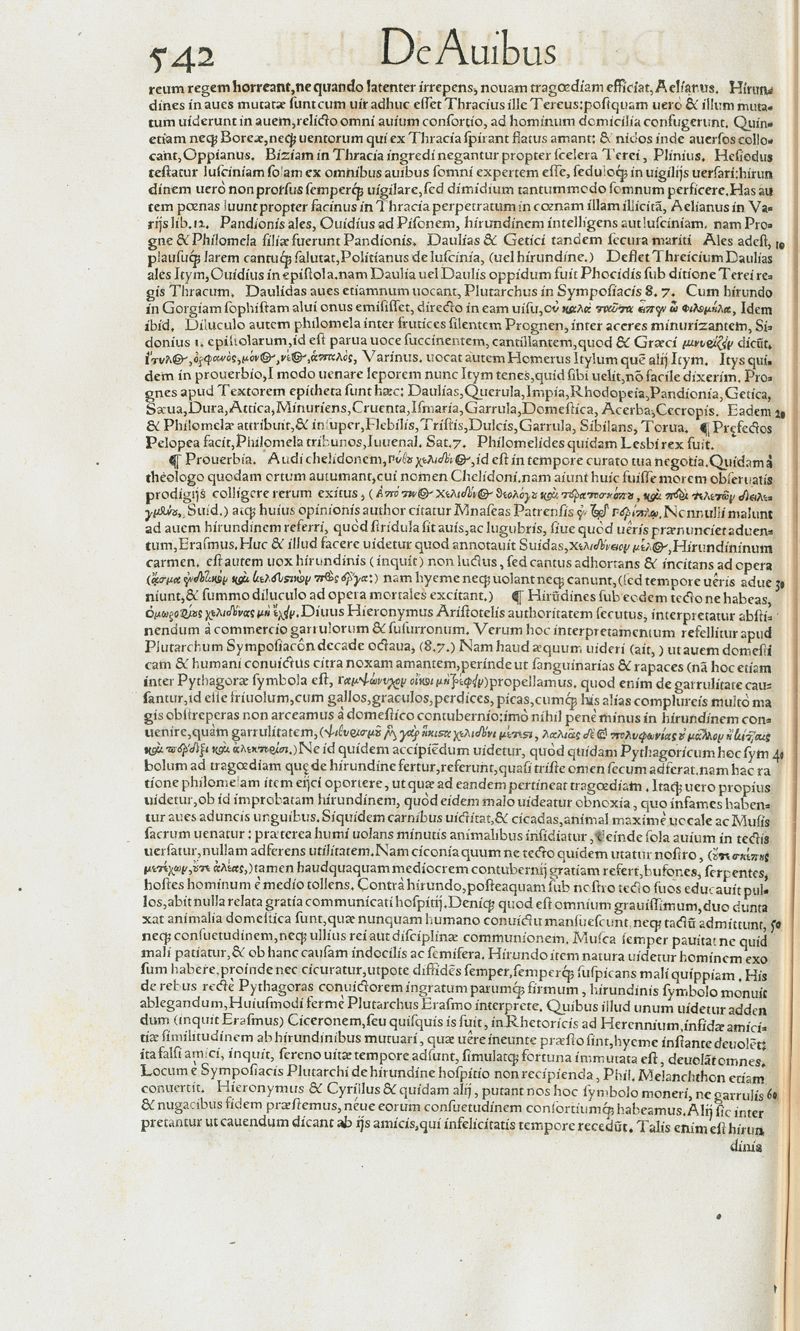 542 De Auibus
reum regem horreant, ne quando latenter irrepens, nouam tragœdiam efficiat, Aelianus. Hirun⸗
dines in aues mutatæ sunt cum uir adhuc esset Thracius ille Tereus: posiquam uero & illum muta⸗
tum uiderunt in auem, relicto omni auium consortio, ad hominum domicilia confugerunt. Quin⸗
etiam neq; Boreæ, neq; uentorum qui ex Thracia spirant flatus amant: & nidos inde auersos collo⸗
cant, Oppianus. Biziam in Thracia ingredi negantur propter scelera Terei, Plinius. Hesiodus
testatur lusciniam solam ex omnibus auibus somni expertem esse, seduloq; in uigilijs uersari: hirun
dinem uero non prorsus semperq; uigilare, sed dimidium tantummodo somnum perficere. Has au
tem pœnas luunt propter facinus in Thracia perpetratum in cœnam illam illicitā, Aelianus in Va⸗
rijs lib.12. Pandionis ales, Ouidius ad Pisonem, hirundinem intelligens aut lusciniam. nam Pro⸗
gne & Philomela filiæ fuerunt Pandionis. Daulias & Getici tandem secura mariti Ales adest, 10
plausuq; larem cantuq; salutat, Politianus de luscinia, (uel hirundine.) Deflet Threicium Daulias
ales Itym, Ouidius in epistola. nam Daulia uel Daulis oppidum fuit Phocidis sub ditione Terei re⸗
gis Thracum. Daulidas aues etiamnum uocant, Plutarchus in Symposiacis 8.7. Cum hirundo
in Gorgiam sophistam alui onus emisisset, directo in eam uisu, οὐ καλὰ ταῦτα εἶπεν ὦ Φιλομήλα, Idem
ibid. Diluculo autem philomela inter frutices silentem Prognen, inter aceres minurizantem, Si⸗
donius 1. epistolarum, id est parua uoce succinentem, cantillantem, quod & Græci μινυρίζειν dicūt.
ἴτυλος, ὀρφανὸς, μόνος, νέος, ἁπαλός, Varinus. uocat autem Homerus Itylum quē alij Itym. Itys qui⸗
dem in prouerbio, I modo uenare leporem nunc Itym tenes, quid sibi uelit, nō facile dixerim. Pro⸗
gnes apud Textorem epitheta sunt hæc: Daulias, Querula, Impia, Rhodopeia, Pandionia, Getica,
Sæua, Dura, Attica, Minuriens, Cruenta, Ismaria, Garrula, Domestica, Acerba, Cecropis. Eadem 20
& Philomelæ attribuit, & insuper, Flebilis, Tristis, Dulcis, Garrula, Sibilans, Torua. ¶ Pręfectos
Pelopea facit, Philomela tribunos, Iuuenal. Sat.7. Philomelides quidam Lesbi rex fuit.
¶ Prouerbia. Audi chelidonem, χελιδόνος, id est in tempore curato tua negotia. Quidam à
theologo quodam ortum autumant, cui nomen Chelidoni. nam aiunt huic fuisse morem obseruatis
prodigijs colligere rerum exitus, (Ἀπό τινος Χελιδόνος θεολόγου καὶ τερατοσκόπου, καὶ περὶ τελετῶν διειλε⸗
γμένου, Suid.) atq; huius opinionis author citatur Mnaseas Patrensis ἐν περίπλῳ. Nonnulli malunt
ad auem hirundinem referri, quòd stridula sit auis, ac lugubris, siue quòd uêris prænunciet aduen⸗
tum, Erasmus. Huc & illud facere uidetur quod annotauit Suidas, χελιδόνειον μέλος, Hirundininum
carmen. est autem uox hirundinis (inquit) non luctus, sed cantus adhortans & incitans ad opera
(ᾆσμα ἐνδοτικὸν καὶ κελευστικὸν πρὸς ἔργα:) nam hyeme neq; uolant neq; canunt, (sed tempore uêris adue 30
niunt, & summo diluculo ad opera mortales excitant.) ¶ Hirūdines sub eodem tecto ne habeas,
Ὁμωροφίους χελιδόνας μὴ ἔχειν. Diuus Hieronymus Aristotelis authoritatem secutus, interpretatur absti⸗
nendum à commercio garrulorum & susurronum. Verum hoc interpretamentum refellitur apud
Plutarchum Symposiacôn decade octaua, (8.7.) Nam haud æquum uideri (ait,) ut auem domesti
cam & humani conuictus citra noxam amantem, perinde ut sanguinarias & rapaces (nā hoc etiam
inter Pythagoræ symbola est, γαμψώνυχον οἴκοι μὴ τρέφειν) propellamus. quod enim de garrulitate cau⸗
santur, id esse friuolum, cum gallos, graculos, perdices, picas, cumq; his alias complureis multò ma
gis obstreperas non arceamus à domestico contubernio: imò nihil penè minus in hirundinem con⸗
uenire, quàm garrulitatem, (Ψιθυρισμοῦ μὲν γὰρ ἥκιστα χελιδόνι μέτεστι, λαλιᾶς δὲ καὶ πολυφωνίας οὐ μᾶλλον ἢ κίτταις
καὶ πέρδιξι καὶ ἀλεκτορίσι.) Ne id quidem accipiēdum uidetur, quòd quidam Pythagoricum hoc sym 40
bolum ad tragœdiam quę de hirundine fertur, referunt, quasi triste omen secum adferat. nam hac ra
tione philomelam item eijci oportere, ut quæ ad eandem pertineat tragœdiam. Itaq; uero propius
uidetur, ob id improbatam hirundinem, quòd eidem malo uideatur obnoxia, quo infames haben⸗
tur aues aduncis unguibus. Siquidem carnibus uictitat, & cicadas, animal maximè uocale ac Musis
sacrum uenatur: præterea humi uolans minutis animalibus insidiatur, deinde sola auium in tectis
uersatur, nullam adferens utilitatem. Nam ciconia quum ne tecto quidem utatur nostro, (οὔτε σκέπης
μετέχων, οὔτε ἀλέας,) tamen haudquaquam mediocrem contubernij gratiam refert, bufones, serpentes,
hostes hominum è medio tollens. Contrà hirundo, posteaquam sub nostro tecto suos educauit pul⸗
los, abit nulla relata gratia communicati hospitij. Deniq; quod est omnium grauissimum, duo dunta
xat animalia domestica sunt, quæ nunquam humano conuictu mansuescunt, neq; tactū admittunt, 50
neq; consuetudinem, neq; ullius rei aut disciplinæ communionem. Musca semper pauitat ne quid
mali patiatur, & ob hanc causam indocilis ac semifera. Hirundo item natura uidetur hominem exo
sum habere, proinde nec cicuratur, utpote diffidēs semper, semperq; suspicans mali quippiam. His
de rebus rectè Pythagoras conuictorem ingratum parumq; firmum, hirundinis symbolo monuit
ablegandum, Huiusmodi fermè Plutarchus Erasmo interprete. Quibus illud unum uidetur adden
dum (inquit Erasmus) Ciceronem, seu quisquis is fuit, in Rhetoricis ad Herennium, infidæ amici⸗
tiæ similitudinem ab hirundinibus mutuari, quæ uêre ineunte præsto sint, hyeme instante deuolēt:
ita falsi amici, inquit, sereno uitæ tempore adsunt, simulatq; fortuna immutata est, deuolāt omnes.
Locum è Symposiacis Plutarchi de hirundine hospitio non recipienda, Phil. Melanchthon etiam
conuertit. Hieronymus & Cyrillus & quidam alij, putant nos hoc symbolo moneri, ne garrulis 60
& nugacibus fidem præstemus, néue eorum consuetudinem consortiumq; habeamus. Alij sic inter
pretantur ut cauendum dicant ab ijs amicis, qui infelicitatis tempore recedūt. Talis enim est hirun
dinis